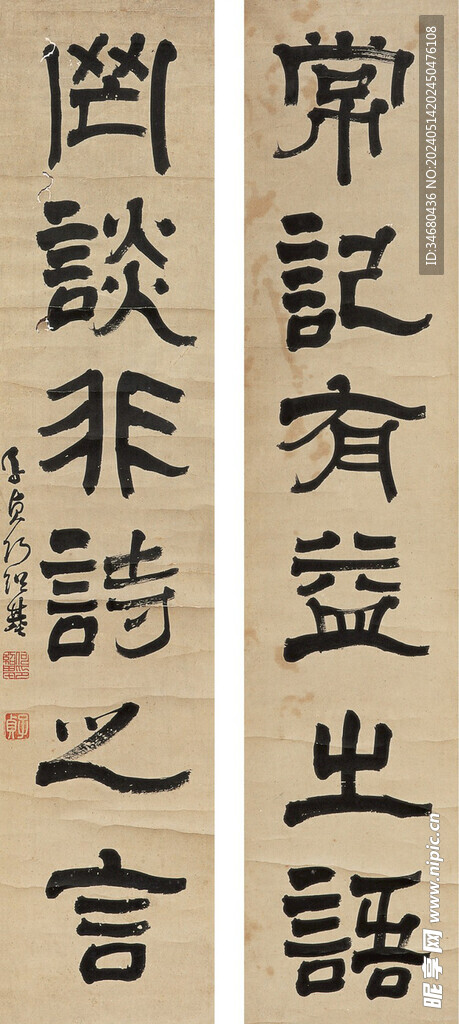 常記有益之語
罔談非詩之言
子貞何紹基
子貞
ID:34680436 NO:20240514202450476108
昵享网 www.nipic.cn